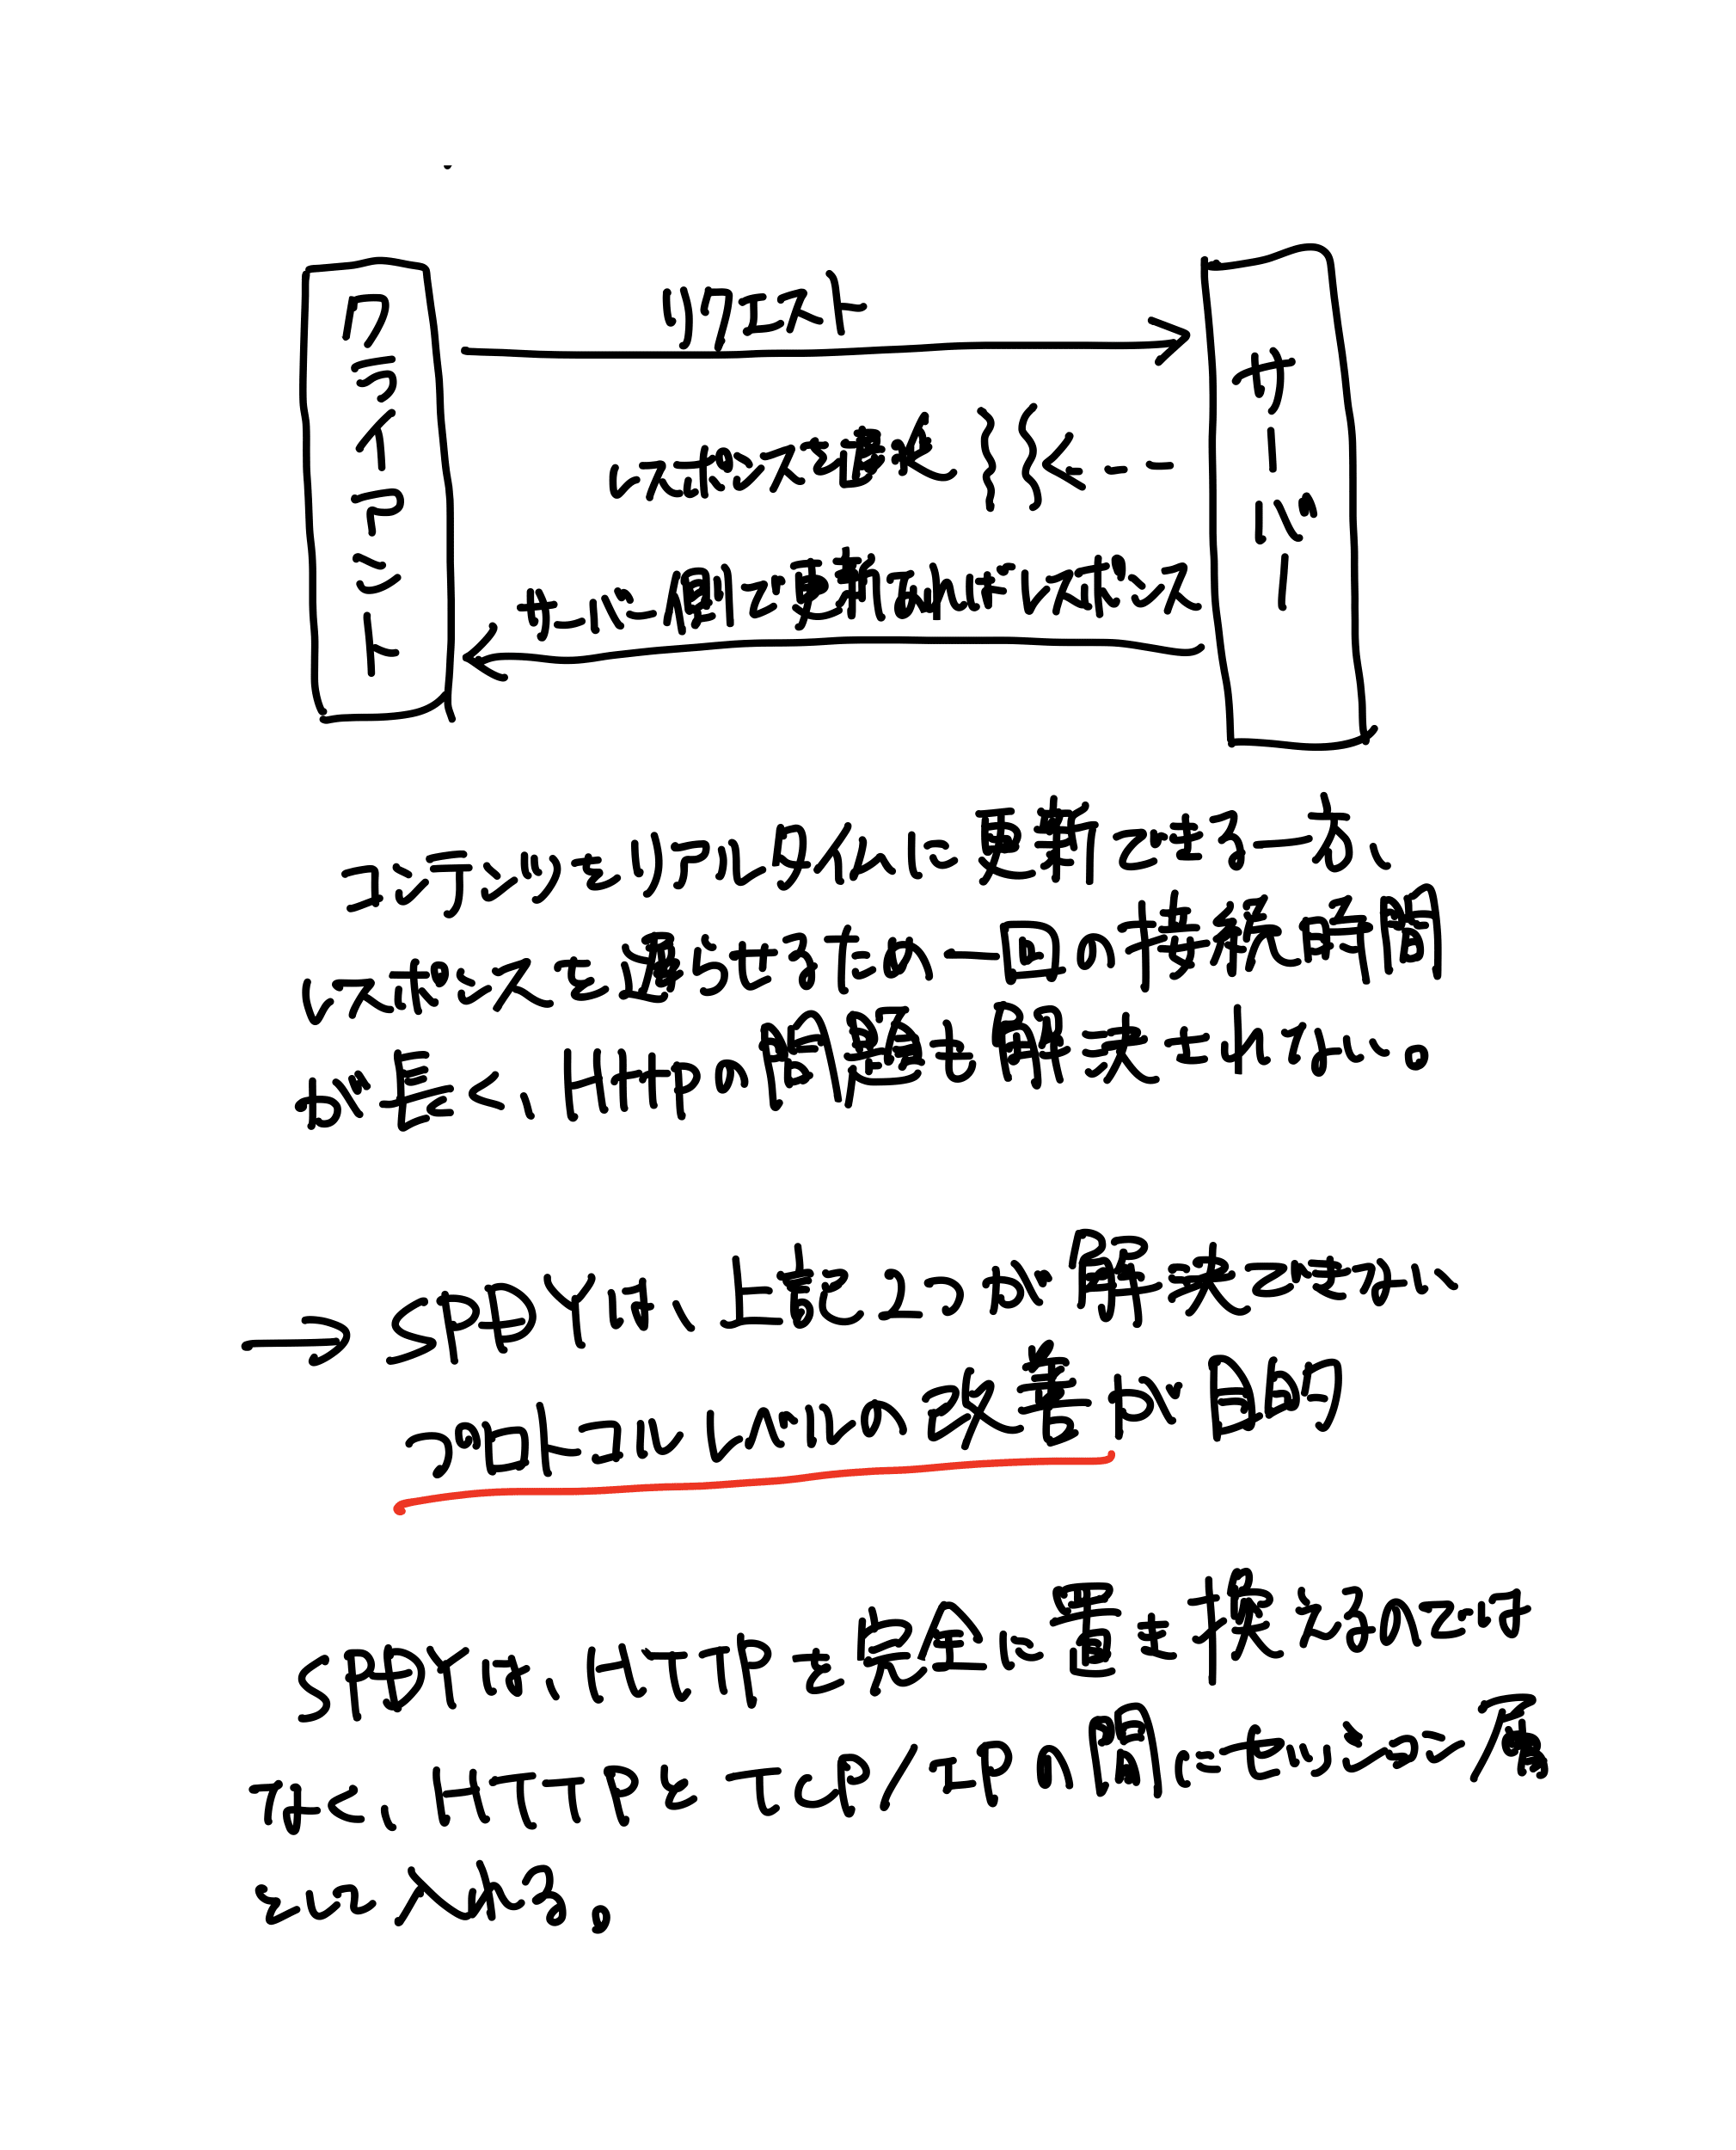 クライアント
リクエスト
サーバー
レスポンスを遅延
サーバー側で更新あればレスポンス
コンテンツをリアルタイムに更新できる一方、
レスポンスを遅らせるため一回の接続時間
が長く、Httpの問題も解決されない。
→ SPDYは、上記2つが解決できない
プロトコルレベルの改善が目的
SPDYは、HTTPを完全に置き換えるのでは
なく、HTTPと TCP/IPの間にセッション層
として入れる。